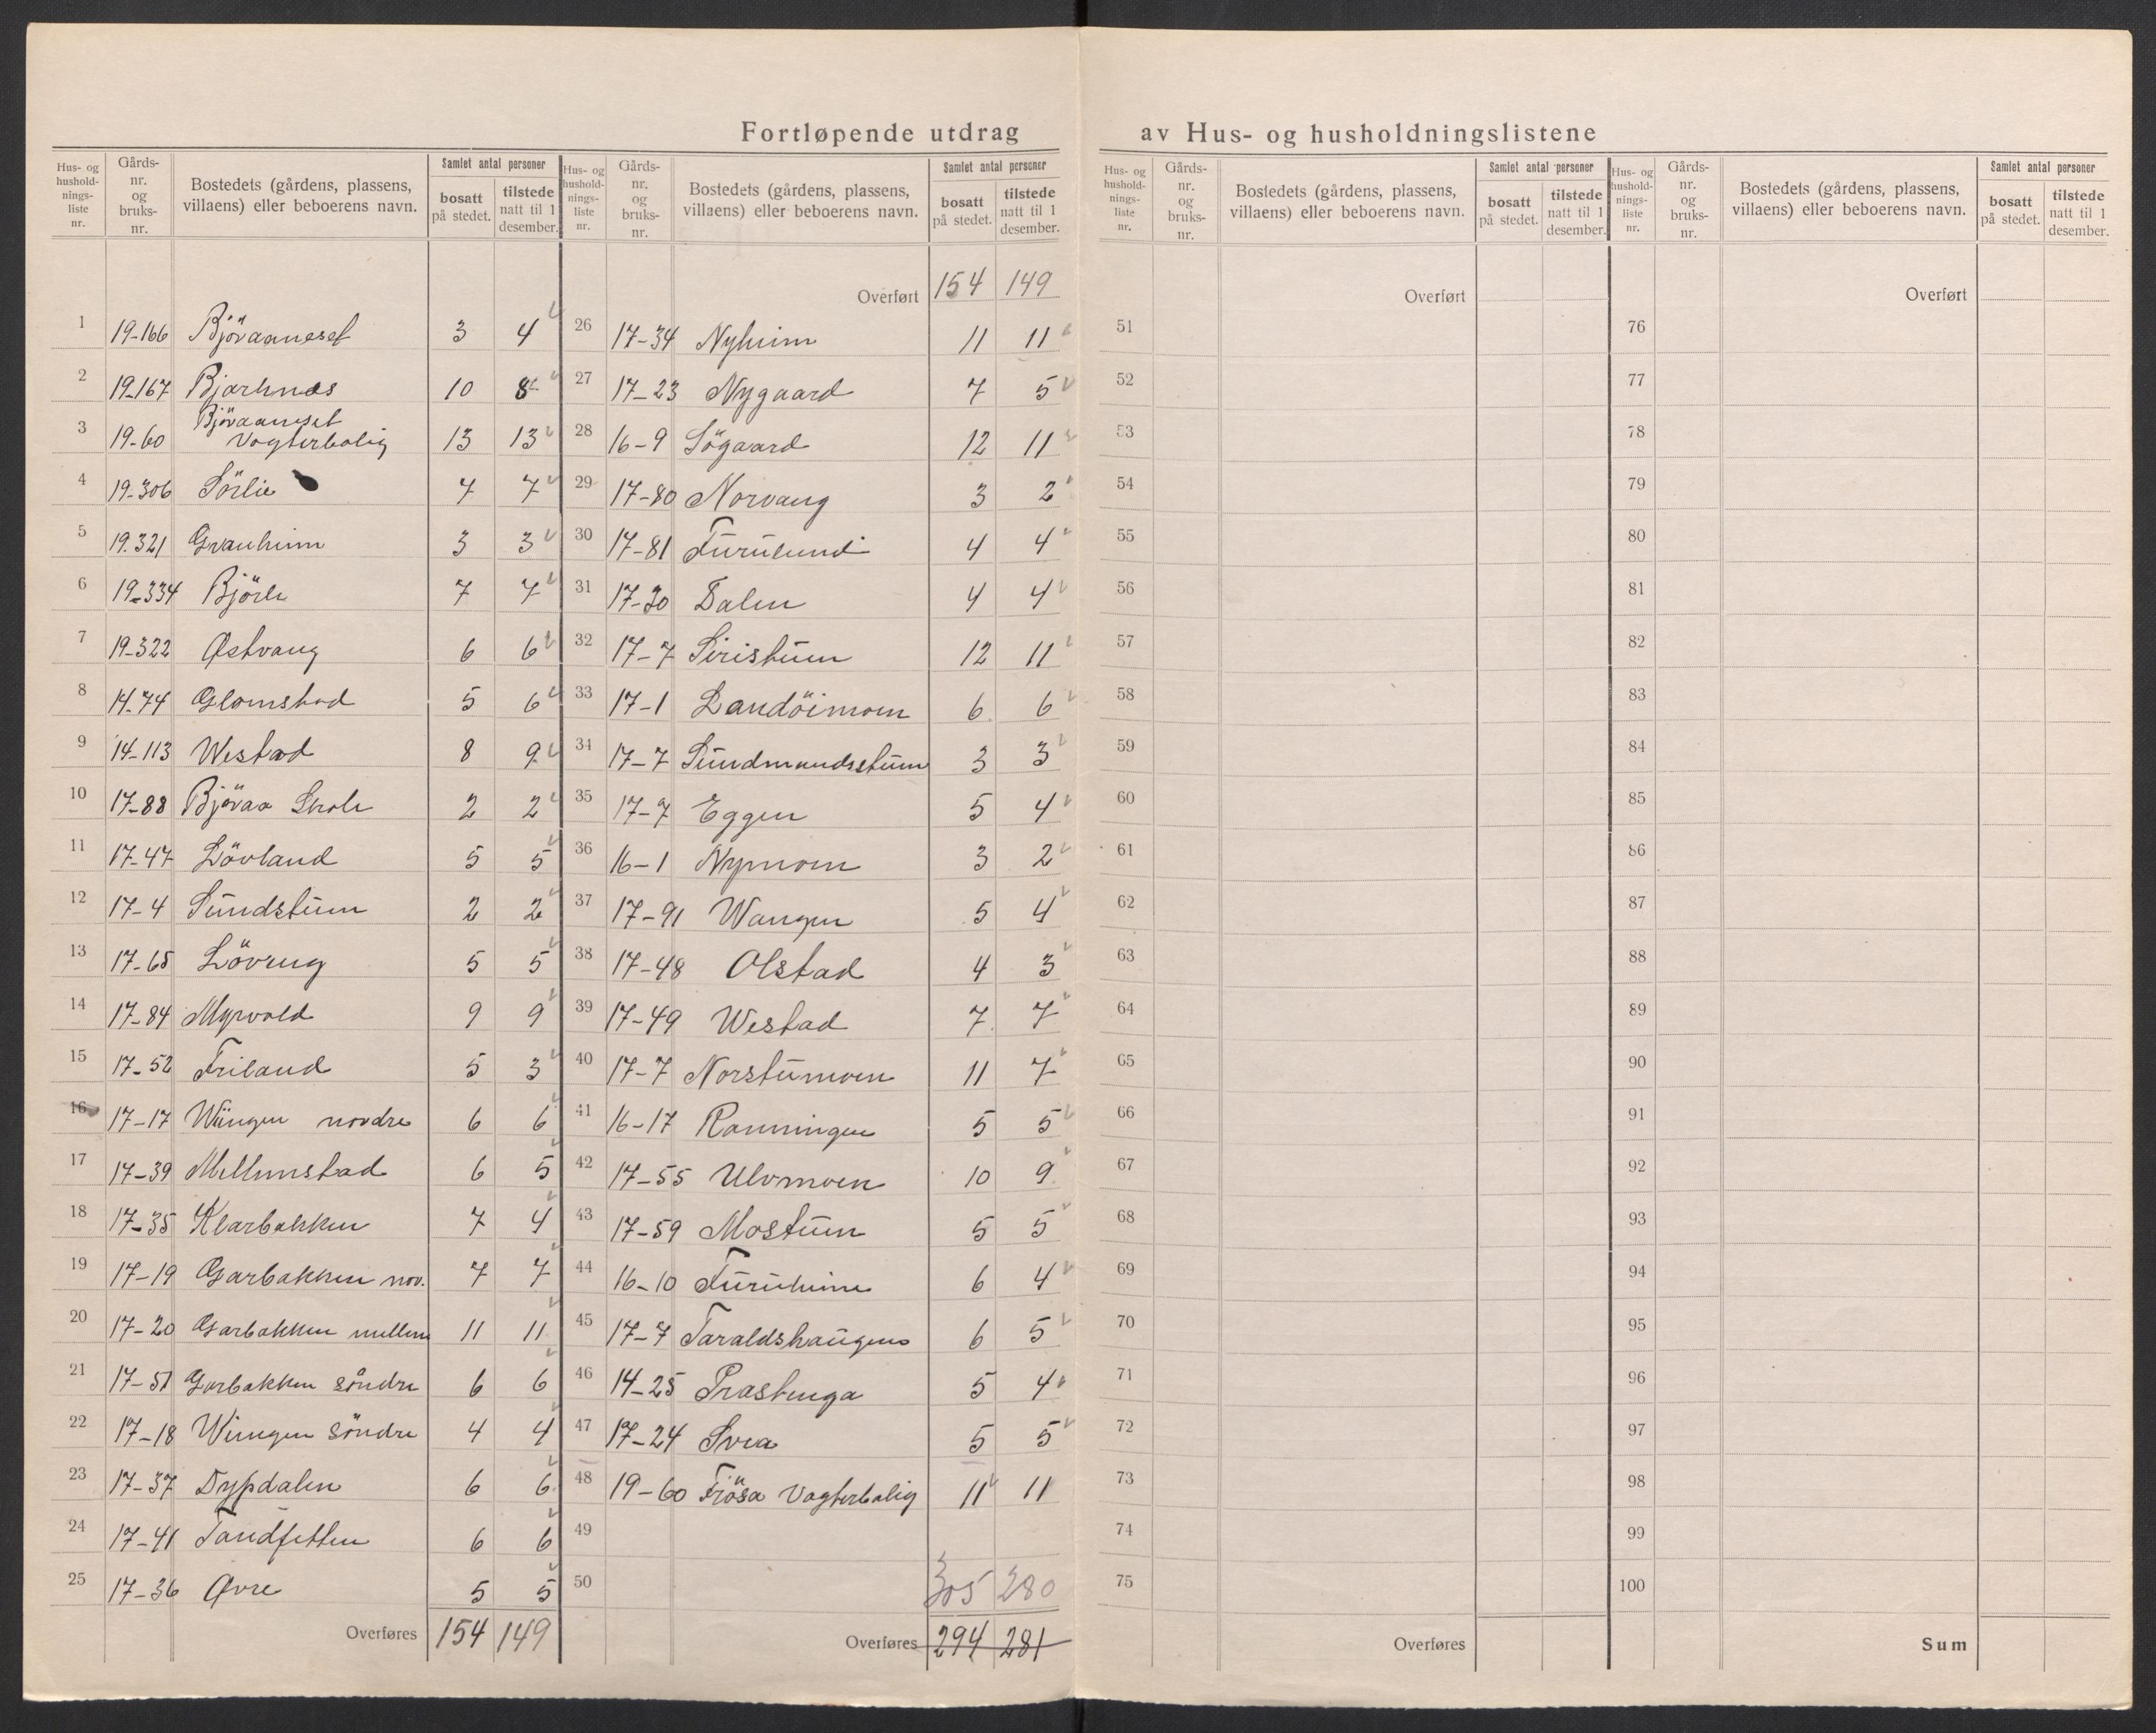 Fortløpende utdrag av Hus- og husholdningslistene
Hus- og hushold-nings-liste nr. | Gårds-nr. og bruks-nr. | Bostedets (gårdens, plassens, villaens) eller beboerens navn. | Samlet antal personer | bosatt på stedet. | tilstede natt til 1 desember.
1 19-166 Björaaneset 3 4
2 19-167 Bjarknæs 10 8
3 19-60 Björaaneset Vogterbolig 13 13
4 19-306 Sörlie 7 7
5 19.321 Granheim 3 3
6 19-334 Björk 7 7
7 19-322 Østvang 6 6
8 14-74 Glomstad 5 6
9 14-113 Westad 8 9
10 17-88 Björaa Skole 2 2
11 17-47 Lövland 5 5
12 17-4 Sundstuen 2 2
13 17-65 Löveng 5 5
14 17-84 Myrvold 9 9
15 17-52 Friland 5 3
16 17-17 Wingen nordre 6 6
17 17-39 Mellemstad 6 5
18 17-35 Klarbakken 7 4
19 17-19 Garbakken nor. 7 7
20 17-20 Garbakken mellem 11 11
21 17-51 Garbakken söndre 6 6
22 17-18 Wingen söndre 4 4
23 17-37 Dypdalen 6 6
24 17-41 6 6
25 17-36 Øvre 5 5
Overføres 154 149
Hus- og hushold-nings-liste nr. | Gårds-nr. og bruks-nr. | Bostedets (gårdens, plassens, villaens) eller beboerens navn. | Samlet antal personer | bosatt på stedet. | tilstede natt til 1 desember.
Overført 154 149
26 17-34 Nyheim 11 11
27 17-23 Nygaard 7 5
28 16-9 Sögaard 12 11
29 17-80 Norvang 3 2
30 17-81 Furulund 4 4
31 17-30 Dalen 4 4
32 17-7 Siristuen 12 11
33 17-1 Landöimoen 6 6
34 17-7 3 3
35 17-7 Eggen 5 4
36 16-1 Nymoen 3 2
37 17-91 Wangen 5 4
38 17-48 Olstad 4 3
39 17-49 Westad 7 7
40 17-7 Norstumoen 11 7
41 16-17 Rønningen 5 5
42 17-55 Ulvmoen 10 9
43 17-59 Mostuen 5 5
44 16-10 Furuheim 6 4
45 17-7 Taraldshaugens 6 5
46 14-25 Prestenga 5 4
47 17-24 Svea 5 5
48 19-60 Frösa Vogterbolig 11 11
49
50 305 280
Overføres 294 281
Hus- og hushold-nings-liste nr. | Gårds-nr. og bruks-nr. | Bostedets (gårdens, plassens, villaens) eller beboerens navn. | Samlet antal personer | bosatt på stedet. | tilstede natt til 1 desember.
Overført
51
52
53
54
55
56
57
58
59
60
61
62
63
64
65
66
67
68
69
70
71
72
73
74
75
Overføres
Hus- og hushold-nings-liste nr. | Gårds-nr. og bruks-nr. | Bostedets (gårdens, plassens, villaens) eller beboerens navn. | Samlet antal personer | bosatt på stedet. | tilstede natt til 1 desember.
Overført
76
77
78
79
80
81
82
83
84
85
86
87
88
89
90
91
92
93
94
95
96
97
98
99
100
Sum